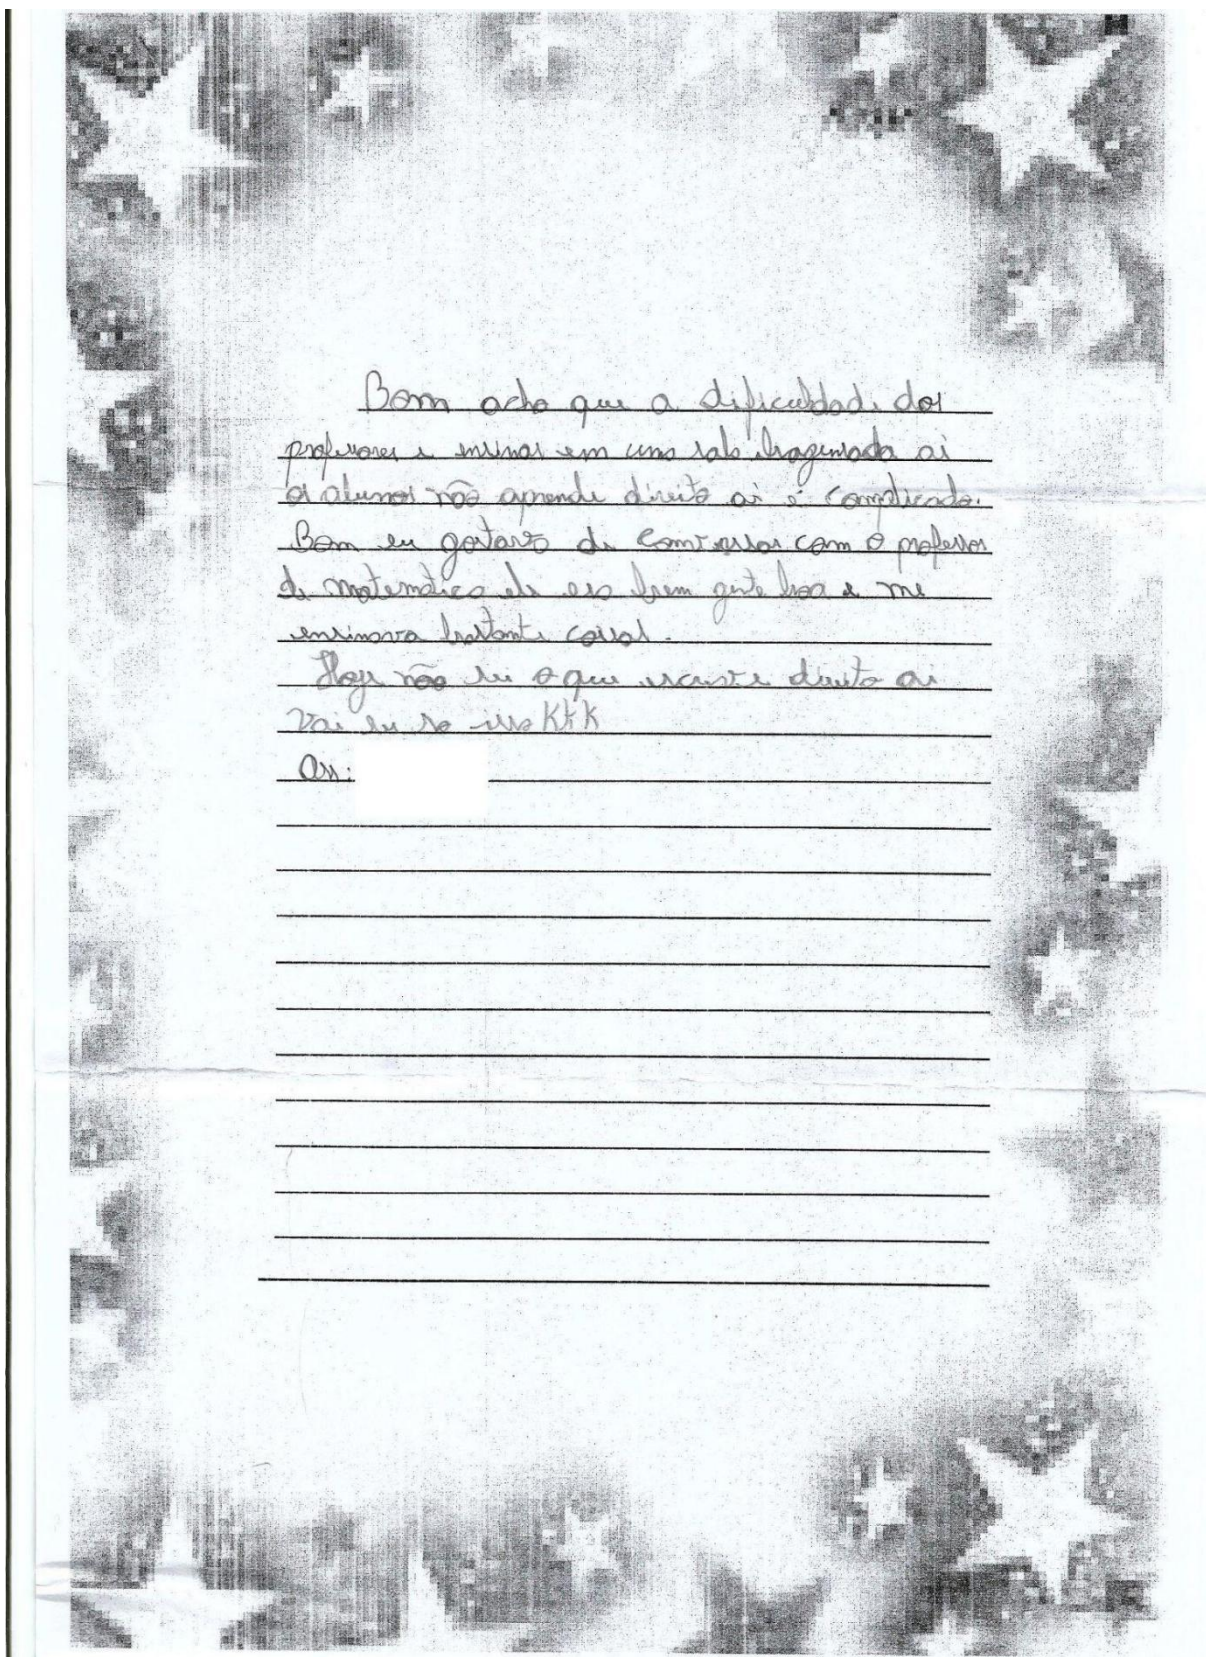 Bom acho que a dificuldade dos
professores e ensinar em uma sala bagunsada ai
os alunos não aprende direito ai é complicado.
Bom eu gostava de conversar com o professor
de matemática ele era bem gente boa e me
ensinava bastante coisas.
Hoje não sei o que escreve direito ai
Vai eu so isso KKK
Ass: